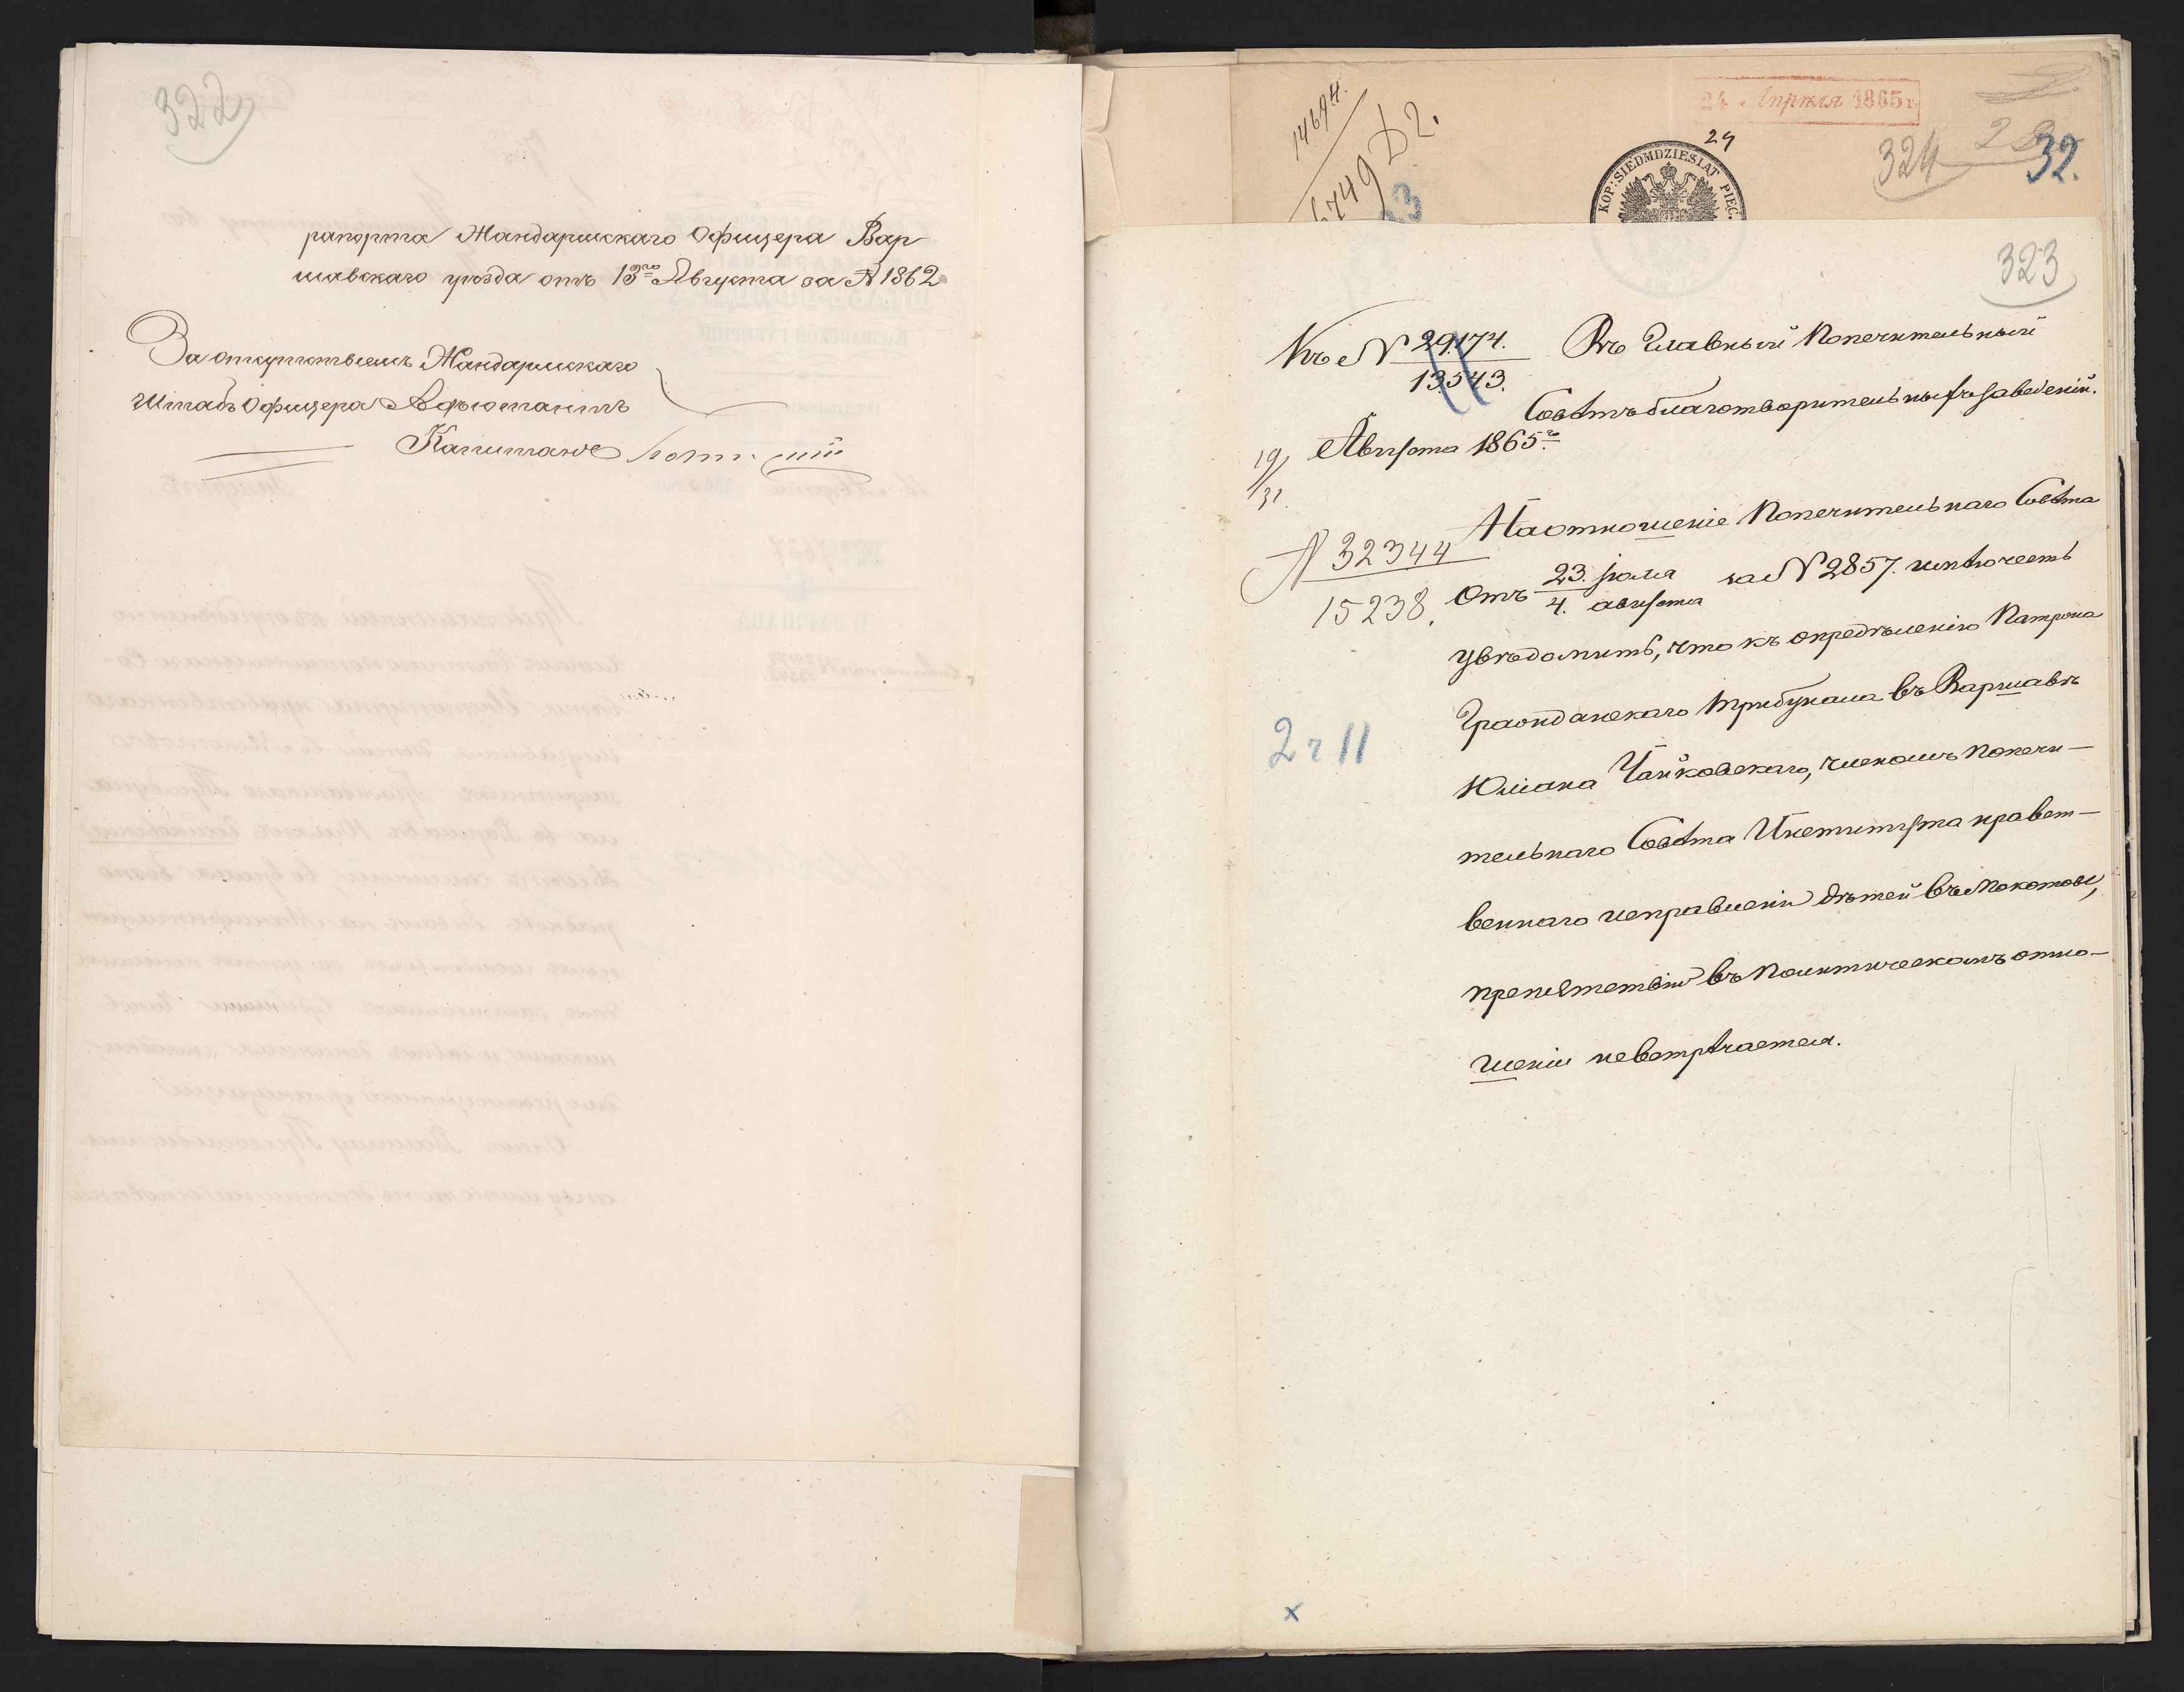 322
рапорта Жандармскаго Офицера Вар
шавскаго уѣзда отъ 13го Августа за № 1862
За отсутствіемъ Жандармскаго
Штабъ Офицера Адъютантъ
Капитанъ
14694.
6749 D2.
23
24 Апрѣля 1865 г.
29
KOP: SIEDMDZIESIAT PIĘĆ.
324
32.
323
Къ № 29174.
13543.
Въ Главный Попечительный
Совѣтъ благотворительныхъ заведеній.
19/31. Августа 1865 г.
№ 32344
15238.
На отношеніе Попечительнаго Совѣта
отъ 23. Іюля / 4. августа за № 2857. имѣю честь
увѣдомить, что къ опредѣленію Патрона
Гражданскаго Трибунала въ Варшавѣ
2 г 11
Юліана Чайковскаго, членомъ Попечи-
тельнаго Совѣта Института нравст-
веннаго исправленія дѣтей въ Мокотовѣ,
препятствій въ Политическомъ отно-
шеніи невстрѣчается.
x